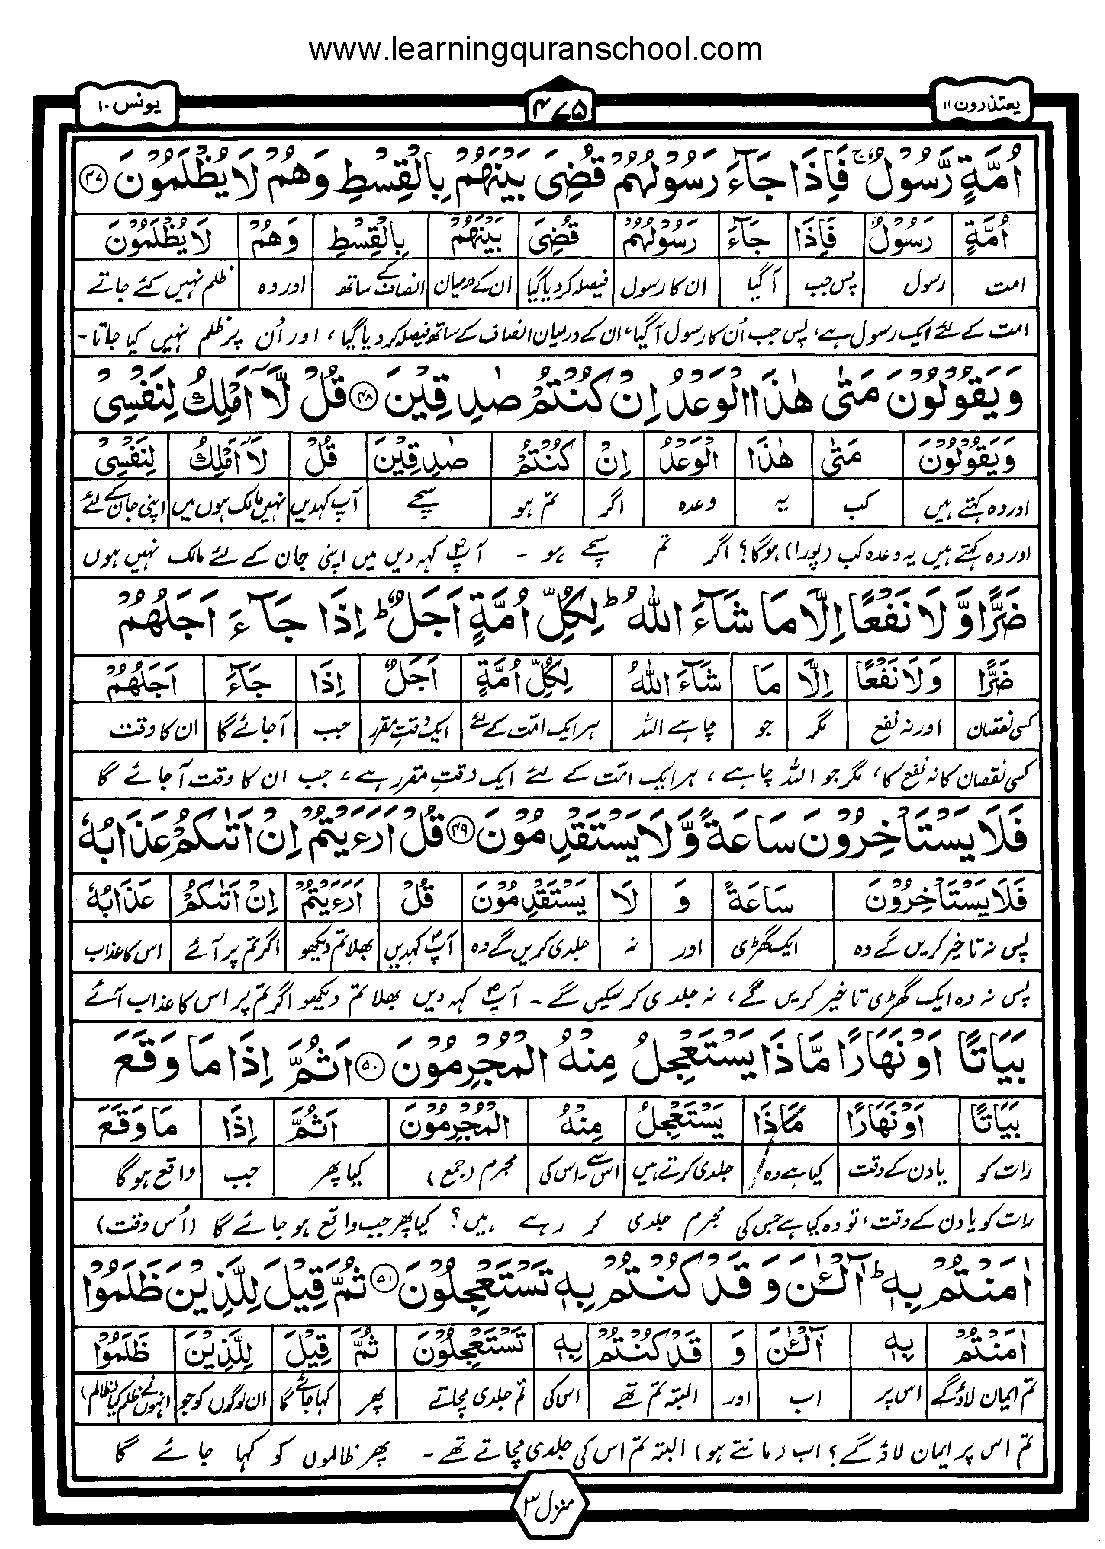 www.learningquranschool.com
یعتذرون ۱۱ ۴۷۵ یونس ۱۰
اُمَّةٍ رَّسُوْلٌ ۚ فَاِذَا جَآءَ رَسُوْلُهُمْ قُضِیَ بَیْنَهُمْ بِالْقِسْطِ وَهُمْ لَا یُظْلَمُوْنَ ۴۷
اُمَّةٍ رَسُوْلٌ فَاِذَا جَآءَ رَسُوْلُهُمْ قُضِیَ بَیْنَهُمْ بِالْقِسْطِ وَهُمْ لَا یُظْلَمُوْنَ
امت رسول پس جب آ گیا ان کا رسول فیصلہ کر دیا گیا ان کے درمیان انصاف کے ساتھ اور وہ ظلم نہیں کئے جاتے
امت کے لئے ایک رسول ہے، پس جب اُن کا رسول آ گیا، ان کے درمیان انصاف کے ساتھ فیصلہ کر دیا گیا، اور اُن پر ظلم نہیں کیا جاتا۔
وَیَقُوْلُوْنَ مَتٰی هٰذَا الْوَعْدُ اِنْ كُنْتُمْ صٰدِقِیْنَ ۴۸ قُلْ لَّآ اَمْلِكُ لِنَفْسِیْ
وَیَقُوْلُوْنَ مَتٰی هٰذَا الْوَعْدُ اِنْ كُنْتُمْ صٰدِقِیْنَ قُلْ لَآ اَمْلِكُ لِنَفْسِیْ
اور وہ کہتے ہیں کب یہ وعدہ اگر تم ہو سچے آپ کہدیں نہیں مالک ہوں میں اپنی جان کے لئے
اور وہ کہتے ہیں یہ وعدہ کب (پورا) ہوگا؟ اگر تم سچے ہو ۔ آپؐ کہہ دیں میں اپنی جان کے لئے مالک نہیں ہوں
ضَرًّا وَّلَا نَفْعًا اِلَّا مَا شَآءَ اللّٰهُ ؕ لِكُلِّ اُمَّةٍ اَجَلٌ ؕ اِذَا جَآءَ اَجَلُهُمْ
ضَرًّا وَلَا نَفْعًا اِلَّا مَا شَآءَ اللّٰهُ لِكُلِّ اُمَّةٍ اَجَلٌ اِذَا جَآءَ اَجَلُهُمْ
کسی نقصان اور نہ نفع مگر جو چاہے اللہ ہر ایک امت کے لئے ایک وقت مقرر جب آ جائے گا ان کا وقت
کسی نقصان کا نہ نفع کا، مگر جو اللہ چاہے، ہر ایک امت کے لئے ایک وقت مقرر ہے، جب ان کا وقت آ جائے گا
فَلَا یَسْتَاْخِرُوْنَ سَاعَةً وَّلَا یَسْتَقْدِمُوْنَ ۴۹ قُلْ اَرَءَیْتُمْ اِنْ اَتٰىكُمْ عَذَابُهٗ
فَلَا یَسْتَاْخِرُوْنَ سَاعَةً وَ لَا یَسْتَقْدِمُوْنَ قُلْ اَرَءَیْتُمْ اِنْ اَتٰىكُمْ عَذَابُهٗ
پس نہ تاخیر کریں گے وہ ایک گھڑی اور نہ جلدی کریں گے وہ آپؐ کہدیں بھلا تم دیکھو اگر تم پر آئے اس کا عذاب
پس نہ وہ ایک گھڑی تاخیر کریں گے، نہ جلدی کر سکیں گے ۔ آپؐ کہہ دیں بھلا تم دیکھو اگر تم پر اس کا عذاب آئے
بَیَاتًا اَوْ نَهَارًا مَّاذَا یَسْتَعْجِلُ مِنْهُ الْمُجْرِمُوْنَ ۵۰ اَثُمَّ اِذَا مَا وَقَعَ
بَیَاتًا اَوْ نَهَارًا مَّاذَا یَسْتَعْجِلُ مِنْهُ الْمُجْرِمُوْنَ اَثُمَّ اِذَا مَا وَقَعَ
رات کو یا دن کے وقت کیا ہے وہ جلدی کرتے ہیں اس سے۔اس کی مجرم (جمع) کیا پھر جب واقع ہوگا
رات کو یا دن کے وقت، تو وہ کیا ہے جس کی مجرم جلدی کر رہے ہیں؟ کیا پھر جب واقع ہو جائے گا (اُس وقت)
اٰمَنْتُمْ بِهٖ ؕ آٰلْـٰٔنَ وَقَدْ كُنْتُمْ بِهٖ تَسْتَعْجِلُوْنَ ۵۱ ثُمَّ قِیْلَ لِلَّذِیْنَ ظَلَمُوْا
اٰمَنْتُمْ بِهٖ آٰلْـٰٔنَ وَ قَدْ كُنْتُمْ بِهٖ تَسْتَعْجِلُوْنَ ثُمَّ قِیْلَ لِلَّذِیْنَ ظَلَمُوْا
تم ایمان لاؤ گے اس پر اب اور البتہ تم تھے اس کی تم جلدی مچاتے پھر کہا جائے گا ان لوگوں کو جو انہوں نے ظلم کیا (ظالم)
تم اس پر ایمان لاؤ گے؟ اب (مانتے ہو) البتہ تم اس کی جلدی مچاتے تھے ۔ پھر ظالموں کو کہا جائے گا
منزل ۳